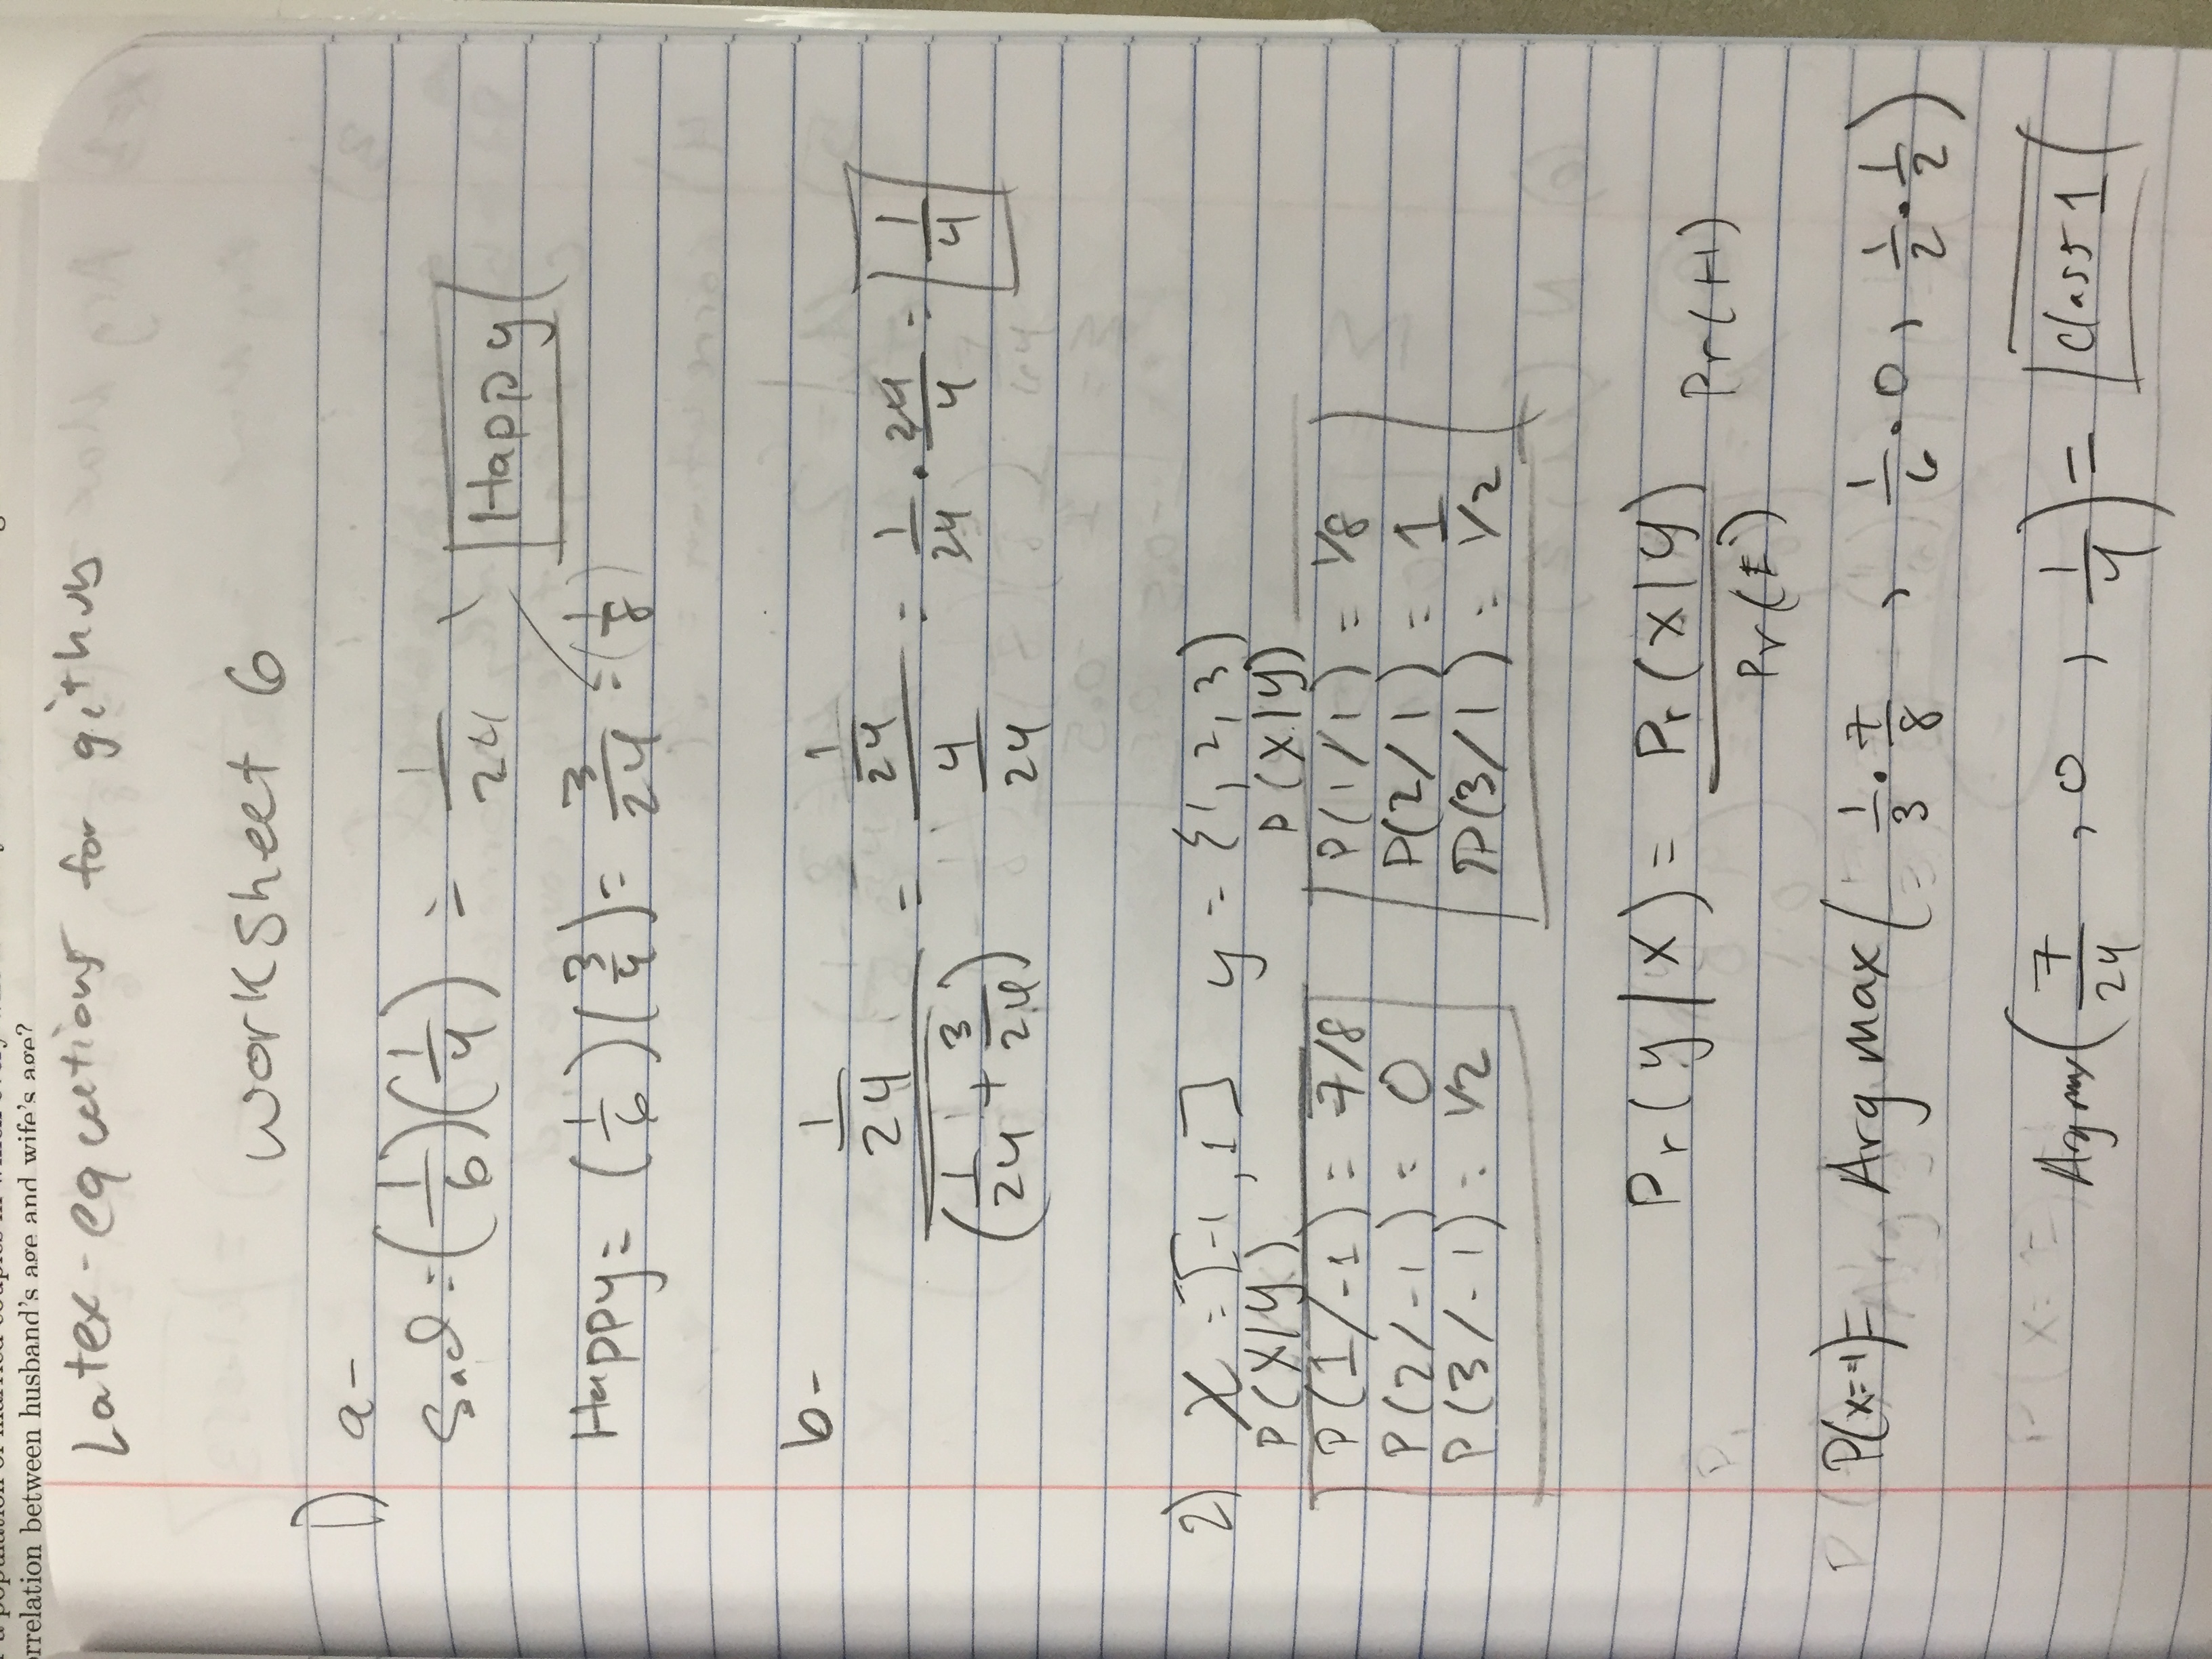 orrelation between husband's age and wife's age?
Latex-equations for github
Worksheet 6
1) a-
Sad = (1/6)(1/4) = 1/24
Happy
Happy = (1/6)(3/4) = 3/24 = (1/8)
b-
(1/24)/(1/24 + 3/24) = (1/24)/(4/24) = 1/24 · 24/4 = 1/4
2) X = [-1, 1] y = {1, 2, 3)
P(X|Y) P(X|Y)
P(1/-1) = 7/8 P(1/1) = 1/8
P(2/-1) = 0 P(2/1) = 1
P(3/-1) = 1/2 P(3/1) = 1/2
Pr(y/x) = Pr(x|y)/Pr(E) Pr(H)
P(x=-1)= Arg max( 1/3 · 7/8 , 1/6 · 0, 1/2 · 1/2 )
Arg max( 7/24 , 0 , 1/4 ) = Class 1